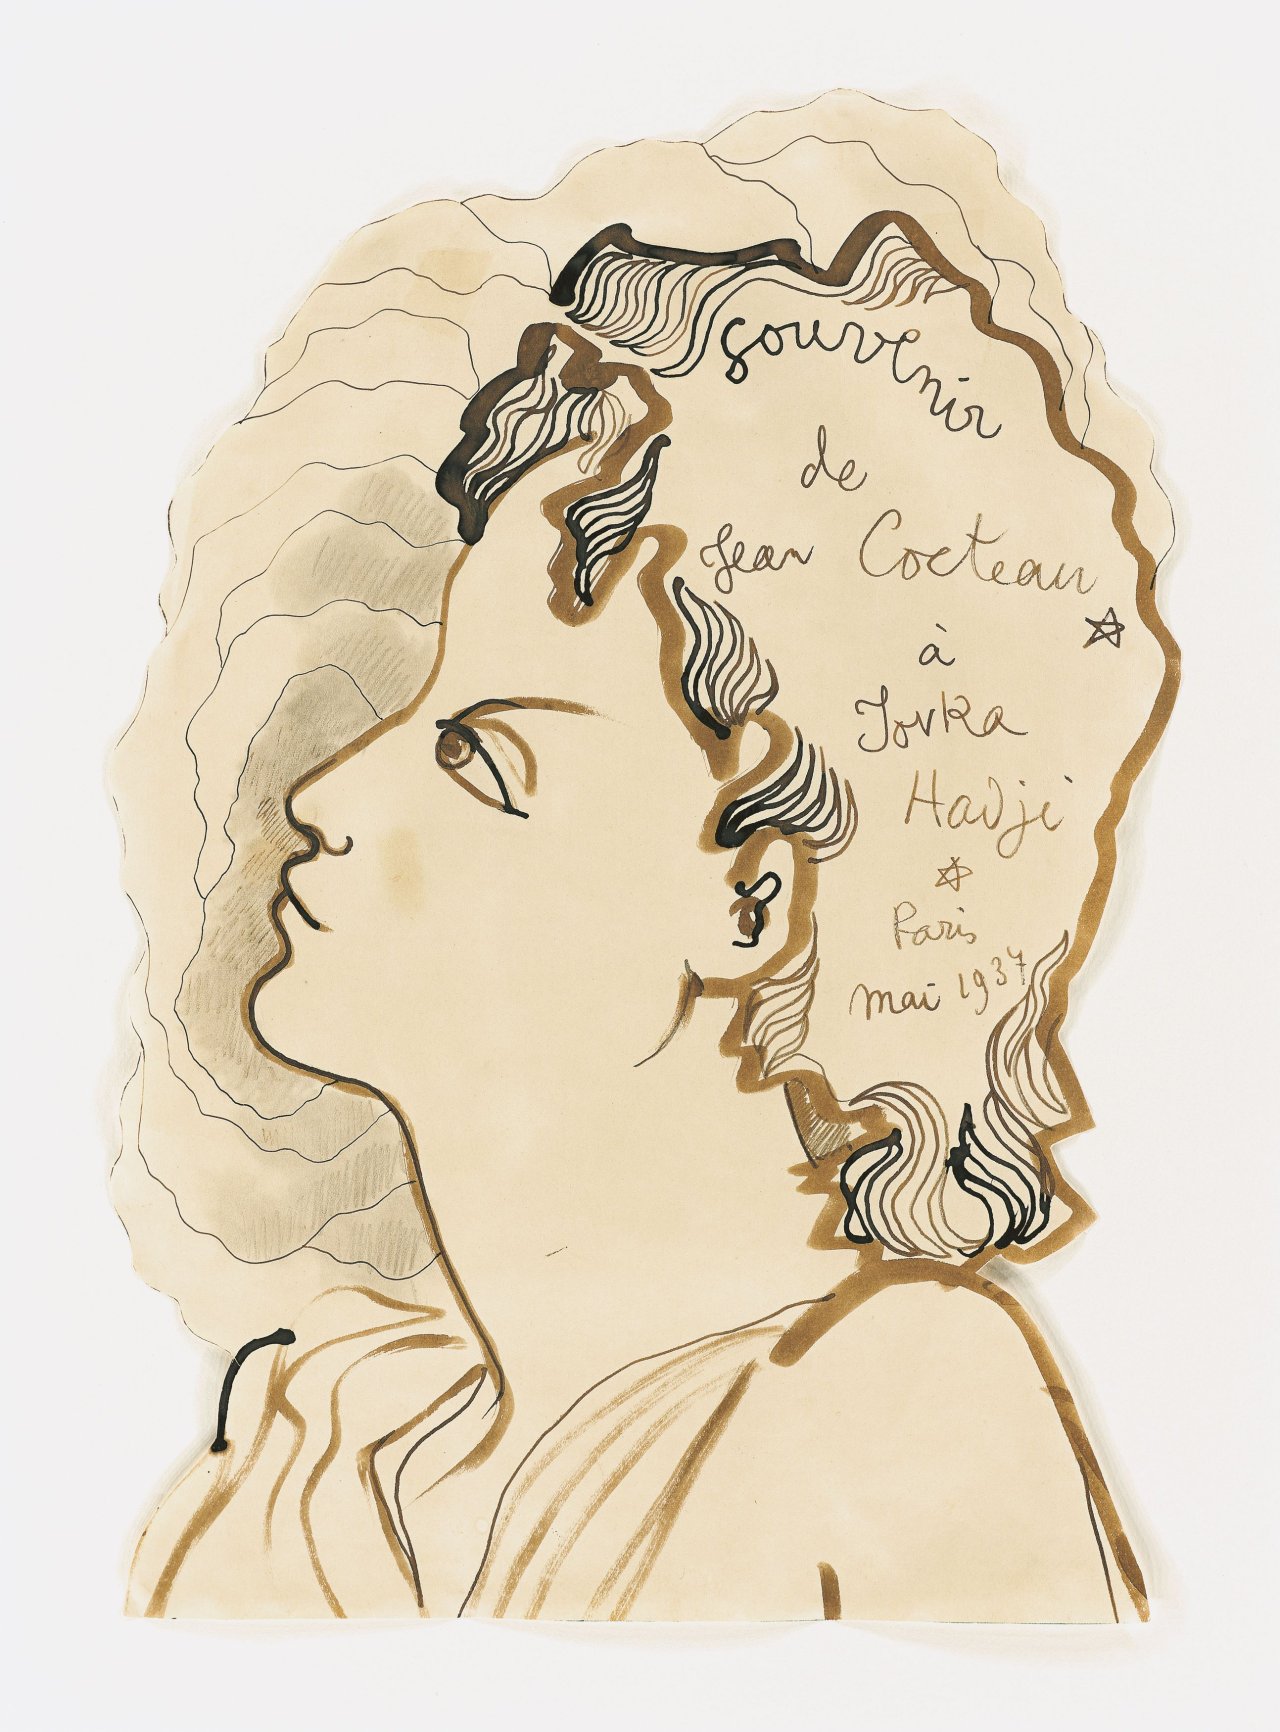 souvenir
de
Jean Cocteau
à
Jovka
Hadji
Paris
mai 1937